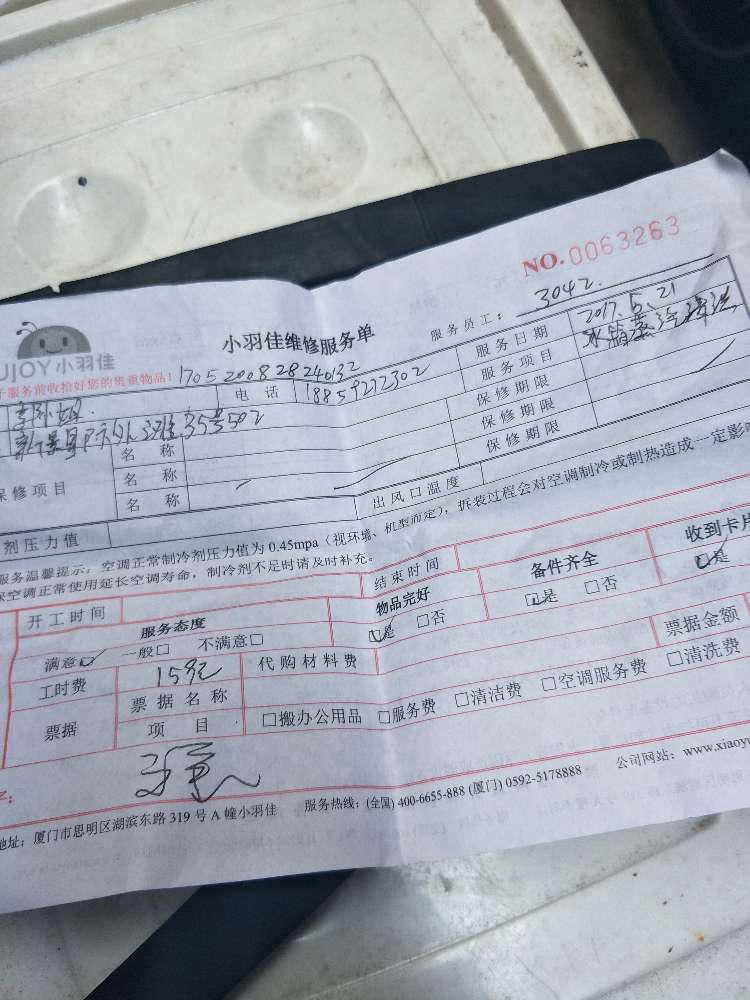 NO.0063263
UJOY小羽佳
小羽佳维修服务单
服务员工：3042
服务前收拾好您的贵重物品！
17052008282240132
电 话 18859272302
服务日期 2017.5.21
服务项目 冰箱蒸汽清洗
保修期限
保修期限
保修期限
保修项目
名 称
名 称
名 称
剂压力值
出风口温度
服务温馨提示：空调正常制冷剂压力值为 0.45mpa（视环境、机型而定），拆装过程会对空调制冷或制热造成一定影
保空调正常使用延长空调寿命，制冷剂不足时请及时补充。
开工时间
结束时间
服务态度
物品完好
备件齐全
收到卡片
满意☑ 一般□ 不满意□
☑是 □否
☑是 □否
☑是
工时费 15元
代购材料费
票据金额
票据
票据名称
项 目
□搬办公用品 □服务费 □清洁费 □空调服务费 □清洗费
地址：厦门市思明区湖滨东路 319 号 A 幢小羽佳
服务热线：(全国) 400-6655-888 (厦门) 0592-5178888
公司网站：www.xiaoyu